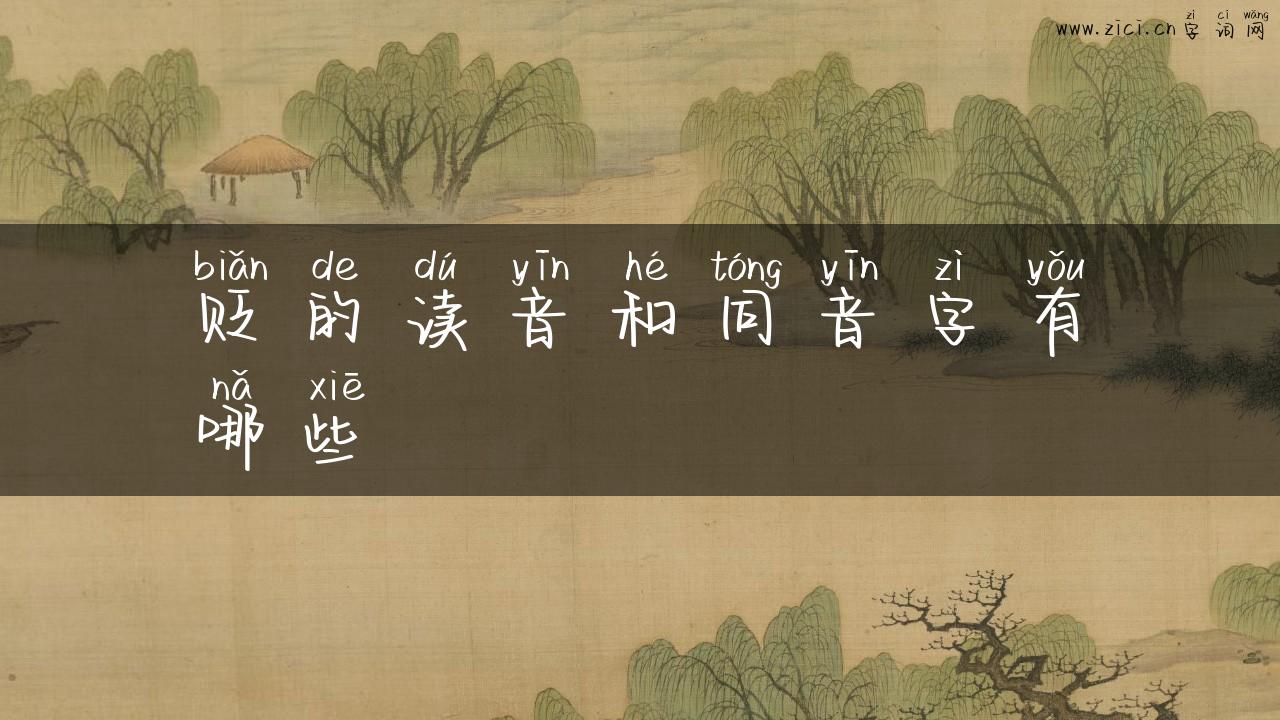 zì cí wǎng
www.zici.cn 字 词 网
biǎn de dú yīn hé tóng yīn zì yǒu
贬 的 读 音 和 同 音 字 有
nǎ xiē
哪 些